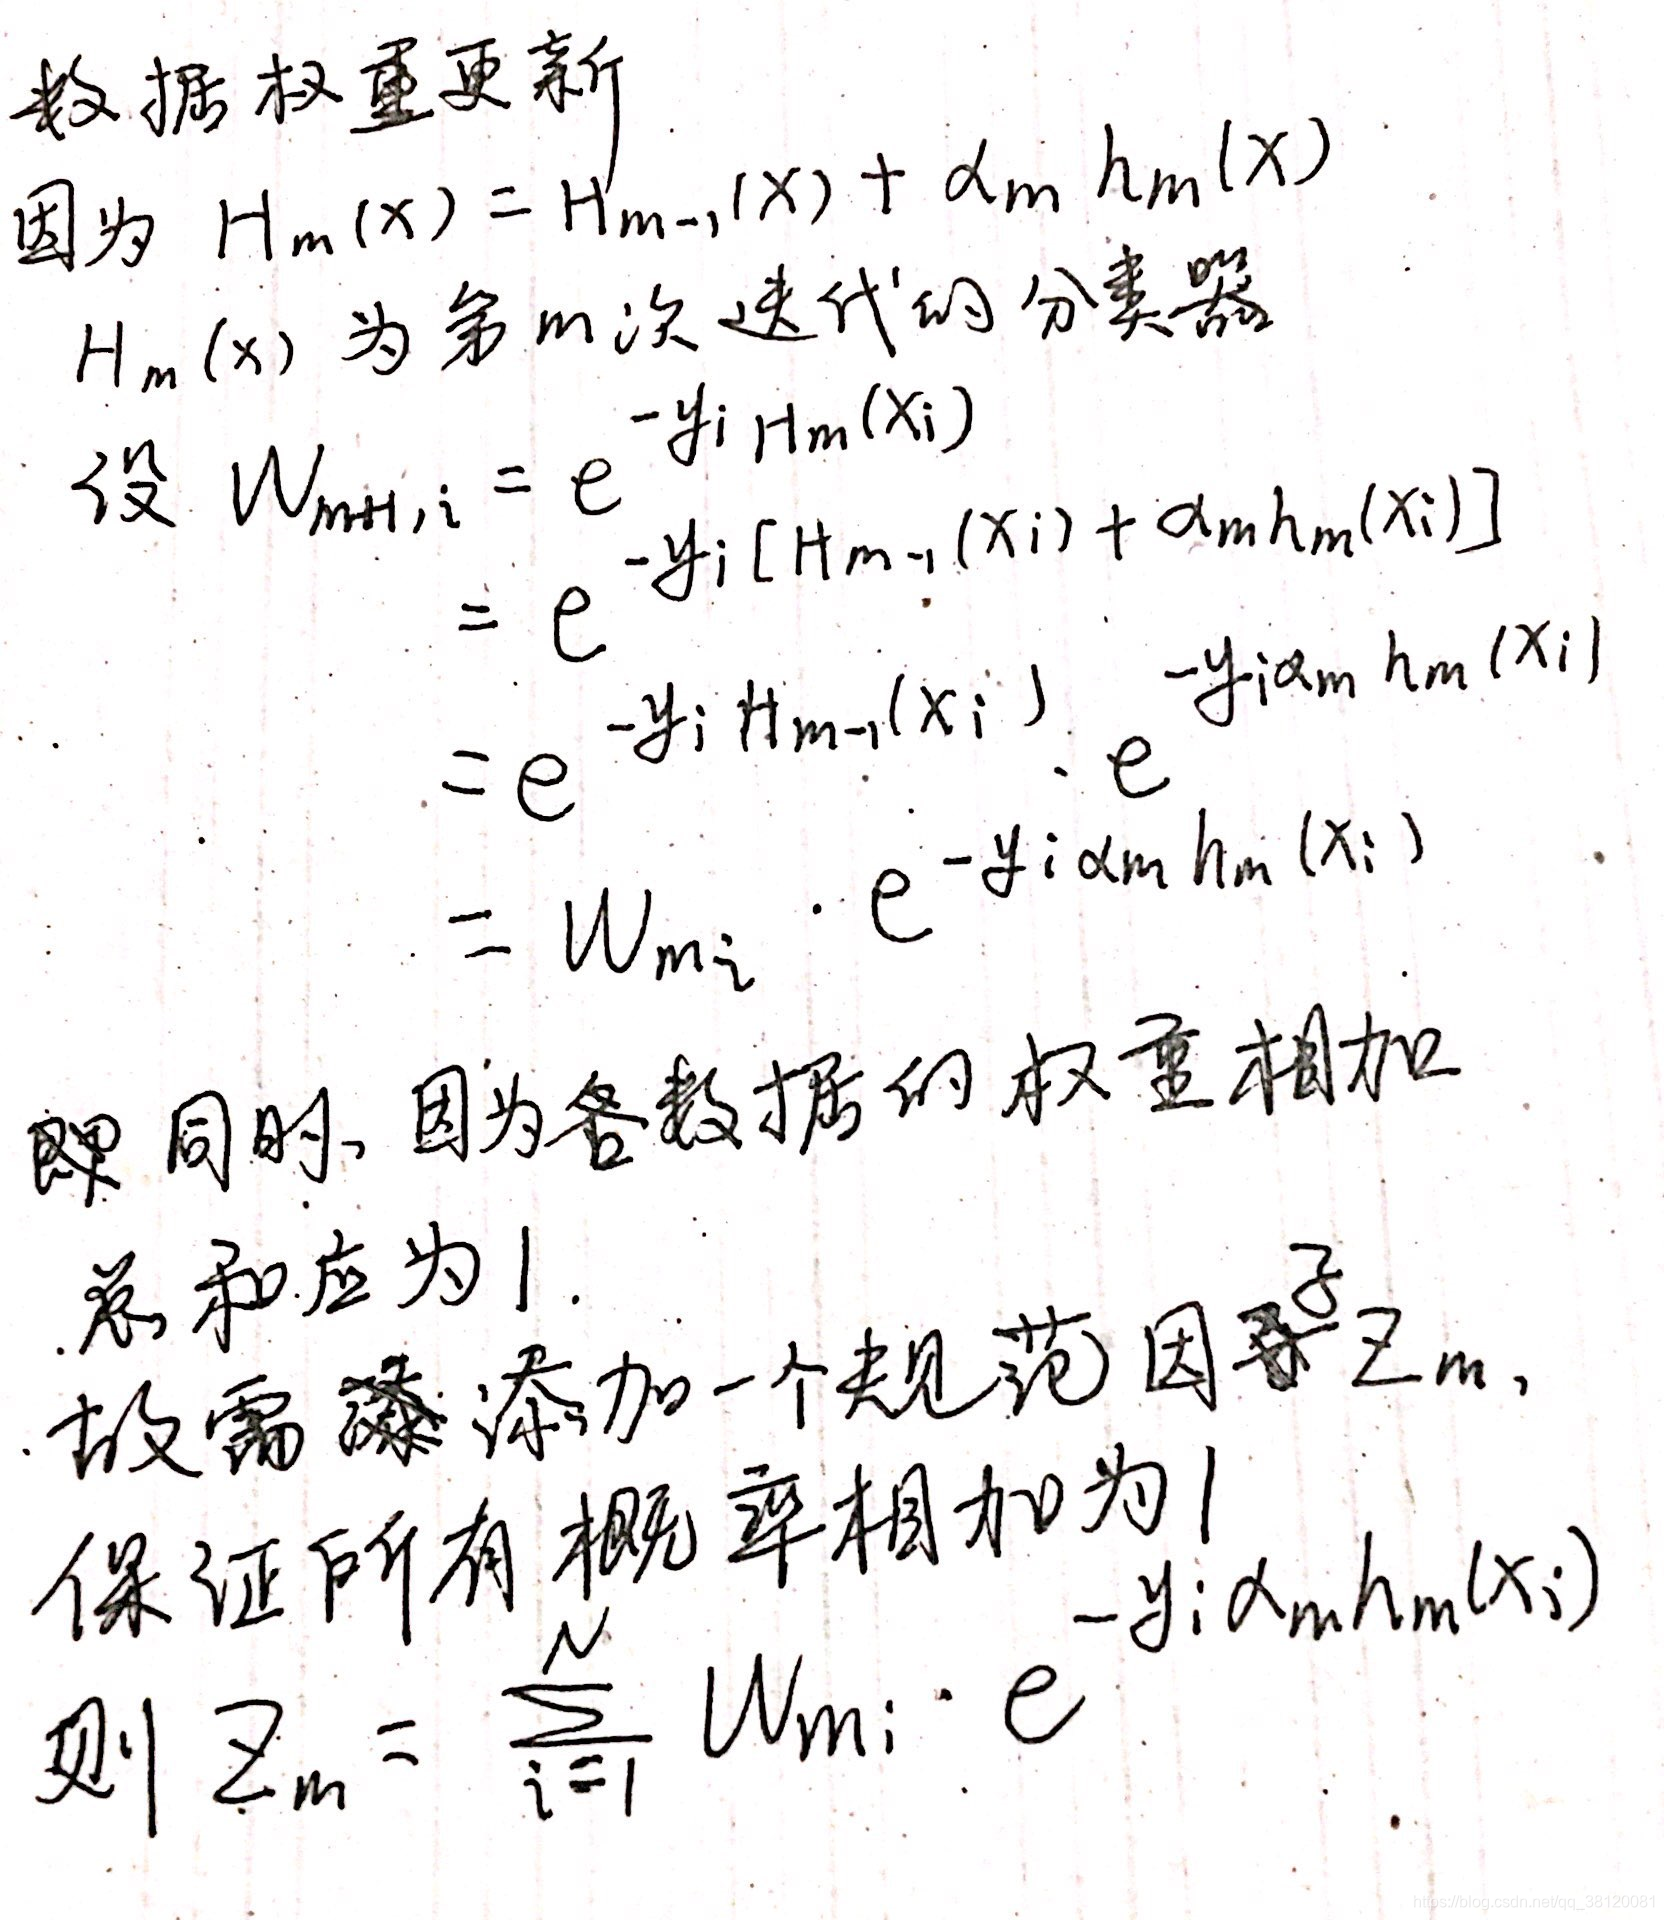 数据权重更新
因为 Hm(x) = Hm-1(x) + αm hm(x)
Hm(x) 为第m次迭代的分类器
设 Wm+1,i = e^{-yi Hm(xi)}
= e^{-yi[Hm-1(xi) + αmhm(xi)]}
= e^{-yi Hm-1(xi)} · e^{-yiαm hm(xi)}
= Wmi · e^{-yiαm hm(xi)}
同时、因为各数据的权重相加
总和应为1.
故需添加一个规范因子Zm,
保证所有概率相加为1
则 Zm = ∑_{i=1}^{N} Wmi · e^{-yiαmhm(xi)}
https://blog.csdn.net/qq_38120081